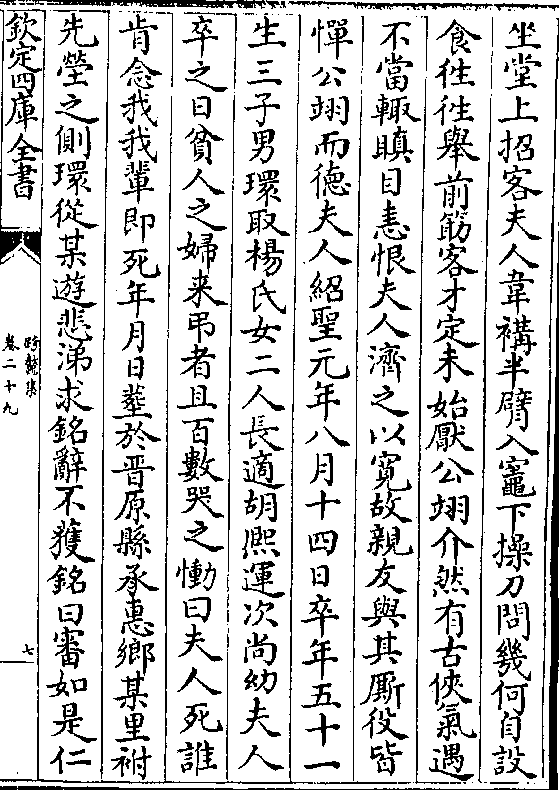 坐堂上招客夫人韋褠半臂入竈下操刀問幾何自設
食徃徃舉前筯客才定未始厭公翊介然有古俠氣遇
不當輙瞋目恚恨夫人濟之以寛故親友與其厮役皆
憚公翊而德夫人紹聖元年八月十四日卒年五十一
生三子男環取楊氏女二人長適胡熈運次尚幼夫人
卒之日貧人之婦来弔者且百數哭之慟曰夫人死誰
肯念我我輩即死年月日塟於晋原縣承惠鄉某里祔
先塋之側環從某遊悲涕求銘辭不獲銘曰審如是仁
欽定四庫全書
跨鼇集
卷二十九
七